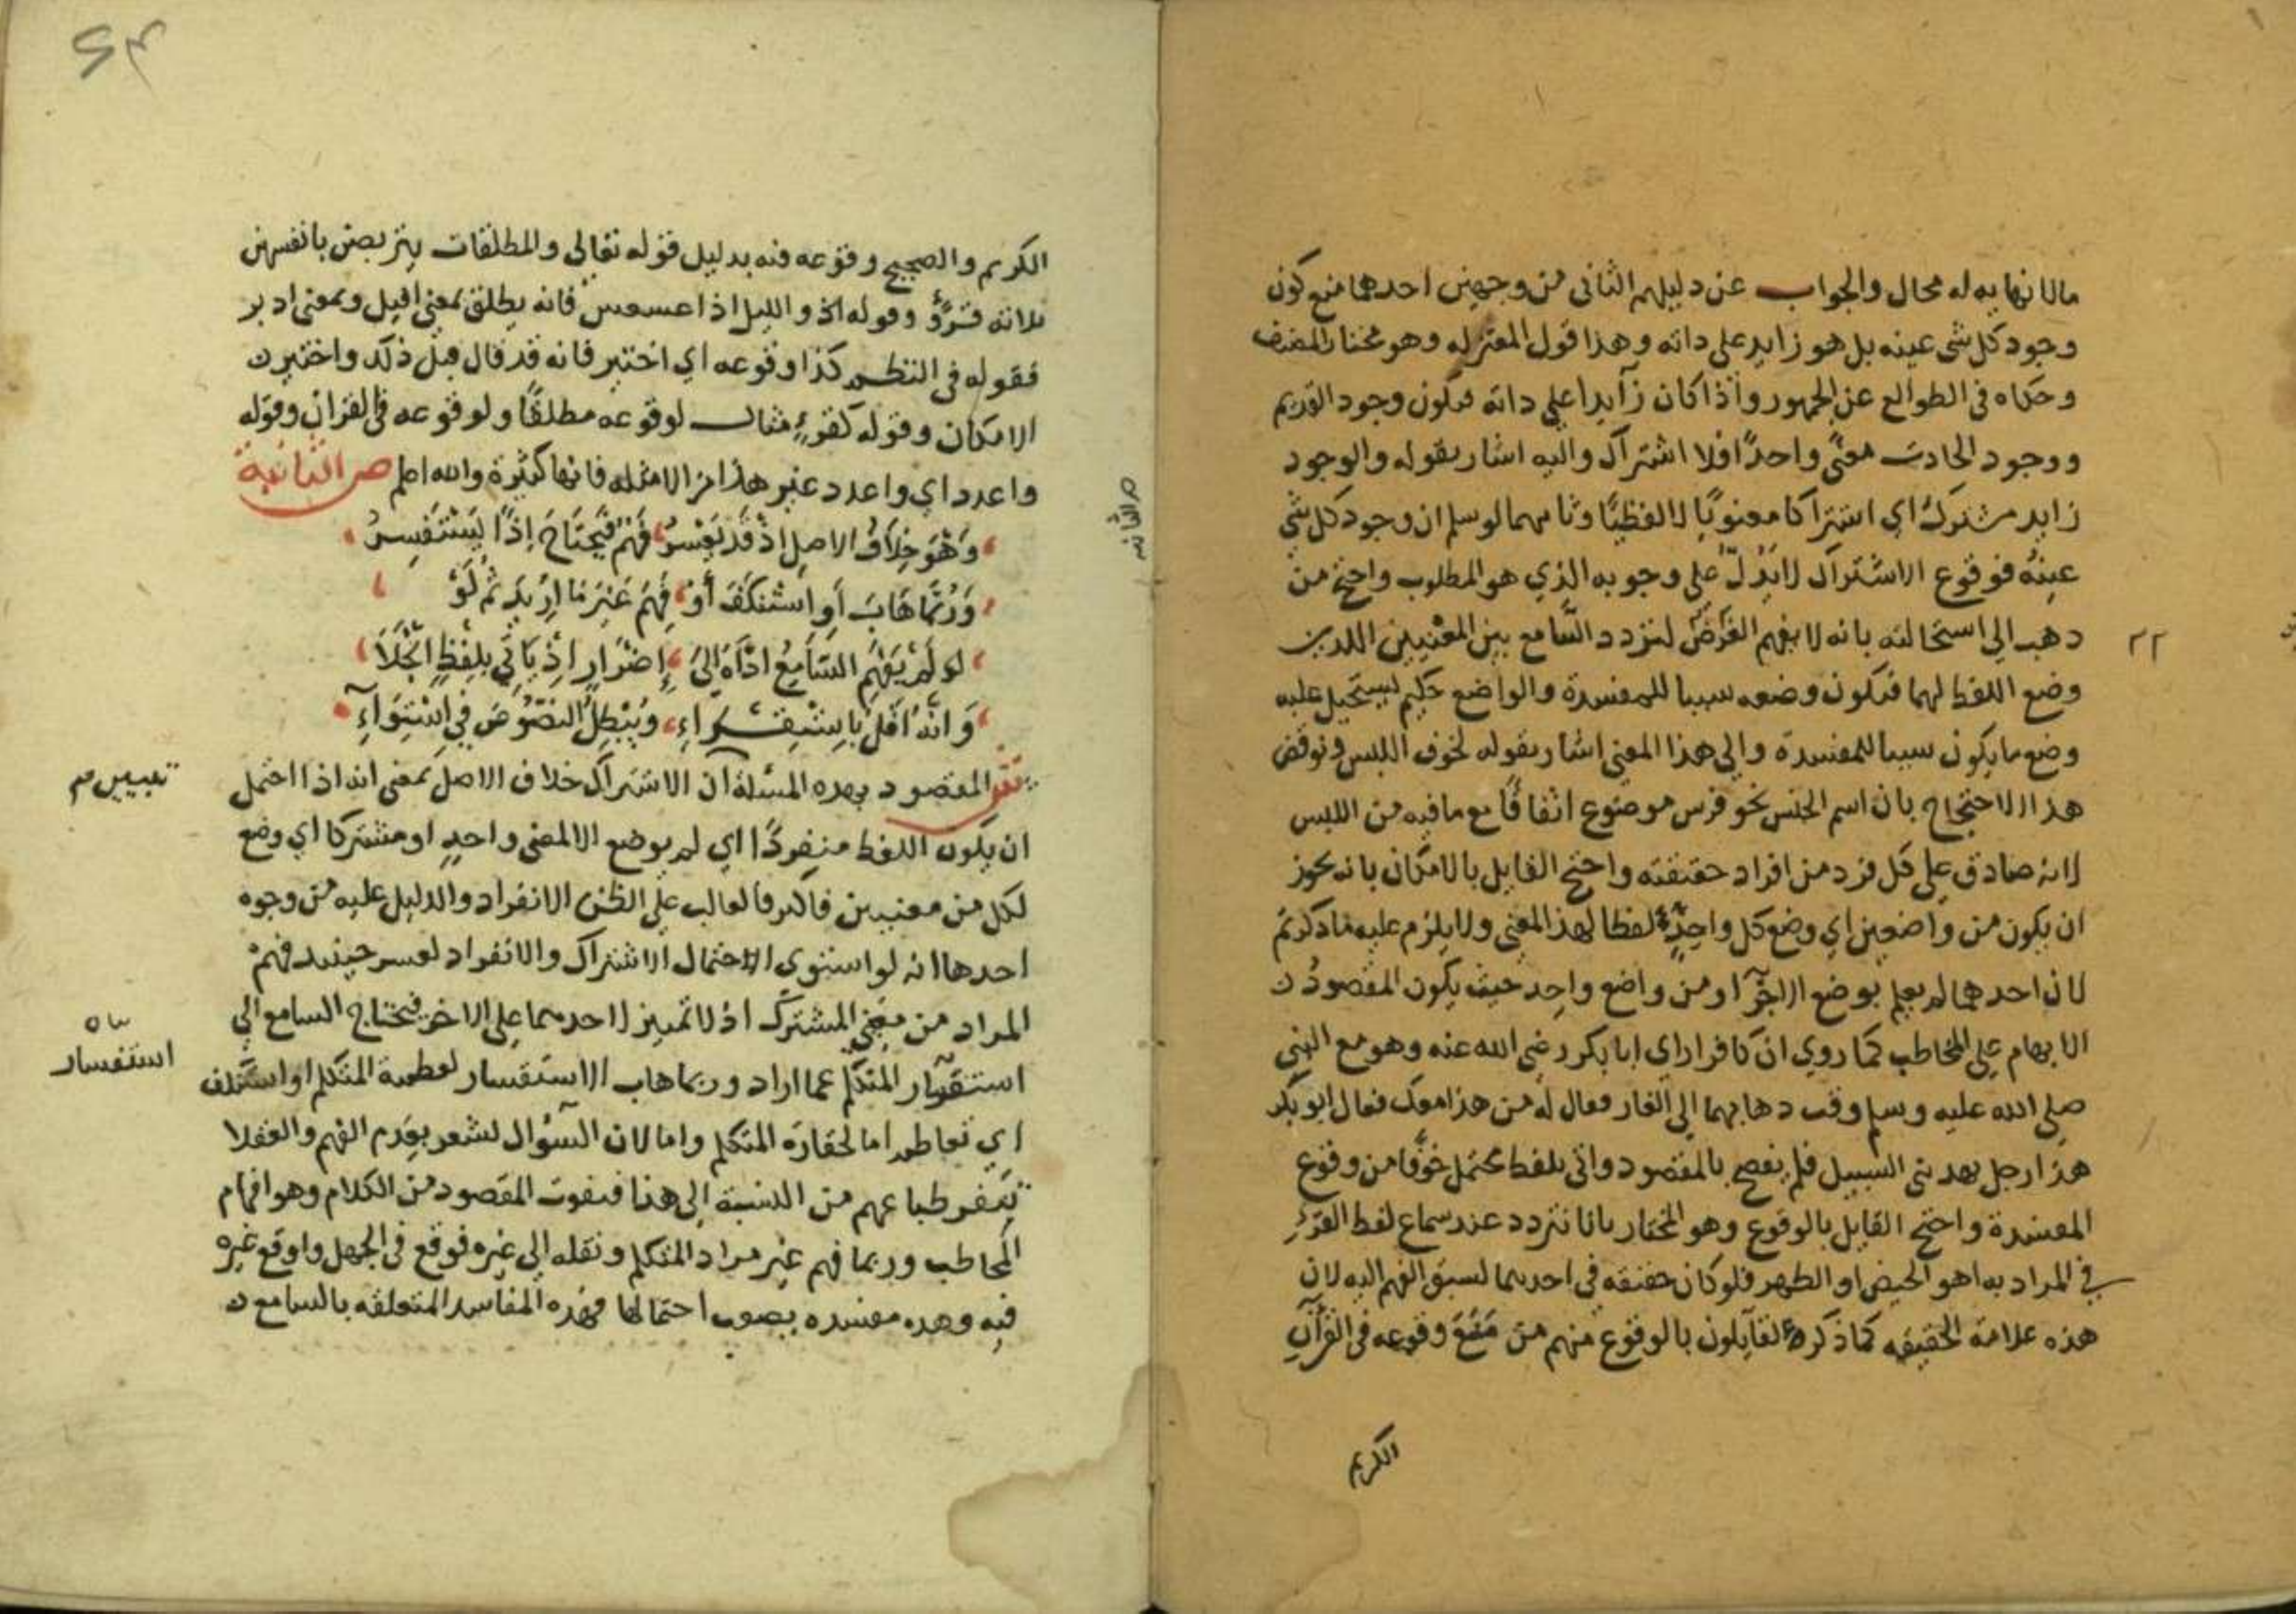 مالا نهاية له محال والجواب عن دليلهم الثاني من وجهين احدهما منع كون
وجود كل شي عينه بل هو زايد على ذاته وهذا قول المعتزله وهو مختار المصنف
وحكاه في الطوالع عن الجمهور واذا كان زآيدا علي ذاته فيكون وجود القديم
ووجود الحادث معنًي واحدًا فلا اشتراك واليه اشار بقوله والوجود
زايد مشترك اي اشتراكا معنويًا لا لفظيًا وثانيهما لو سلم ان وجود كل شي
عينهُ فوقوع الاشتراك لا يدلّ على وجوبه الذي هو المطلوب واحتج من
ذهب الي استحالته بانه لا يفهم الغرض لتردد السّامع بين المعنيين اللذين
وضع اللفظ لهما فيكون وضعه سببا للمفسدة والواضع حكيم يستحيل عليه
وضع ما يكون سببا للمفسدة والي هذا المعني اشار بقوله لخوف اللبس ونوقض
هذا الاحتجاج بان اسم الجنس نحو فرس موضوع اتفاقًا مع ما فيه من اللبس
لانه صادق علي كل فرد من افراد حقيقته واحتج القايل بالامكان بانه يجوز
ان يكون من واضعين اي وضع كل واحدٍ لفظا لهذا المعني ولا يلزم عليه ما ذكرتم
لان احدهما لم يعلم بوضع الاخر او من واضع واحد حيث يكون المقصودُ
الابهام علي المخاطب كما روي ان كافرا راي ابا بكر رضي الله عنه وهو مع النبي
صلي الله عليه وسلم وقت ذهابهما الي الغار فقال له من هذا معك فقال ابو بكر
هذا رجل يهديني السبيل فلم يفصح بالمقصود واتي بلفظ محتمل خوفًا من وقوع
المفسدة واحتج القايل بالوقوع وهو المختار بانا نتردد عند سماع لفظ القرءِ
في المراد به اهو الحيض او الطهر فلو كان حقيقه في احدهما لسبق الفهم اليه لان
هذه علامة الحقيقه كما ذكره القآيلون بالوقوع منهم من منع وقوعه في القرآن
الكريم
٢٢
الكريم والصحيح وقوعه فيه بدليل قوله تعالي والمطلقات يتربصن بانفسهن
ثلاثة قروءٍ وقوله والليل اذا عسعس فانه يطلق بمعني اقبل وبمعني ادبر
فقوله في النظم كذا وقوعه اي اختير فانه قد قال قبل ذلك واختير
الامكان وقوله كقرءٍ مثال لوقوعه مطلقًا ولوقوعه في القران وقوله
واعدد اي واعدد غير هذا من الامثله فانها كثيرة والله اعلم ص الثانية
وَهْوَ خِلَافُ الاصلِ اذْ قَد يَعْسرُ فَهْمٌ فَيَحتَاجُ إذًا يَسْتَفسِرُ
وَرُبَّمَا هَابَ أو اسْتنكَفَ أوْ فَهِمَ غَيْرَ مَا اُرِيدَ ثُمَّ لَوْ
لو لَمْ يَفهَمِ السَّامِعُ ادَّاهُ إلَى إضْرَارٍ اذ يَاتِي بلَفظٍ انْجَلَا
وَانَّهُ اقَلُّ باسْتِقْراءِ وَيُبْطِلُ النصُوصَ في اسْتِوَآءِ
المقصود بهذه المسئلة ان الاشتراك خلاف الاصل بمعني انه اذا احتمل
ان يكون اللفظ منفردًا اي لم يوضع الا لمعني واحدٍ او مشتركا اي وضع
لكل من معنيين فاكثر فالغالب علي الظن الانفراد والدليل عليه من وجوه
احدها انه لو استوي الاحتمال الاشتراك والانفراد لعسر حينيذ فهمُ
المراد من معني المشترك اذ لا تمييز لاحدهما على الاخر فيحتاج السامع الي
استفسار المتكلم عما اراد وربما هاب الاستفسار لعظمة المتكلم او استنكف
اي تعاظم اما لحقارة المتكلم واما لان السّؤال يشعر بعدم الفهم والعقلا
تنفر طباعهم من النسبة الي هذا فيفوت المقصود من الكلام وهو افهام
المخاطب وربما فهم غير مراد المتكلم ونقله الي غيره فوقع في الجهل واوقع غيره
فيه وهذه مفسده يصعب احتمالها فهذه المفاسد المتعلقه بالسامع
ص الثانيه
استفسار